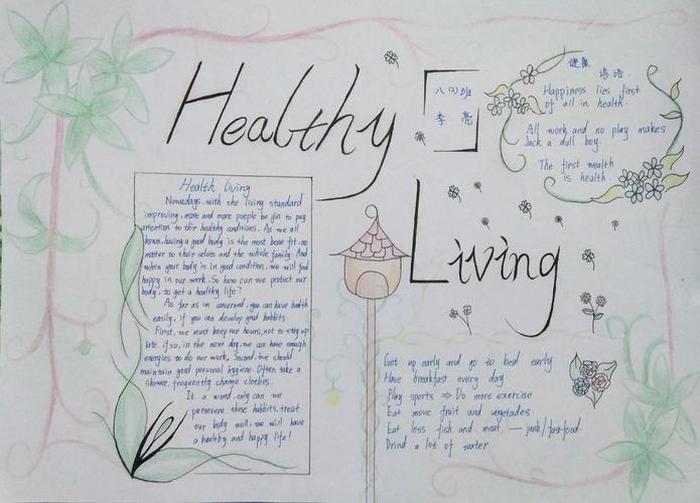 Healthy
Living
八(1)班
李亮
健康
谚语
Happiness lies first
of all in health.
All work and no play makes
Jack a dull boy.
The first wealth
is health.
Health living
Nowadays, with the living standard
improving, more and more poeple be gin to pay
attention to their healthy conditions. As we all
known, having a good body is the most bene fit, no
matter to their selves and the whole family. And
when your body is in good condition, we will feel
happy in our work. So how can we protect our
body, to get a healthy life?
As far as in concerned, you can have health
easily, if you can develop good habbits.
First, we must keep our hours, not to stay up
late. if so, in the next day, we can have enough
energies to do our work. Second, we should
maintain good personal hygiene. Often take a
shower, frequently change clothes.
It a word, only can we
persevere these habbits, treat
our body well, we will have
a healthy and happy life!
Get up early and go to bed early
Have breakfast every day
Play sports ⇒ Do more exercise
Eat move fruit and vegetades.
Eat less fish and meat — junk/fast-food.
Drind a lot of water